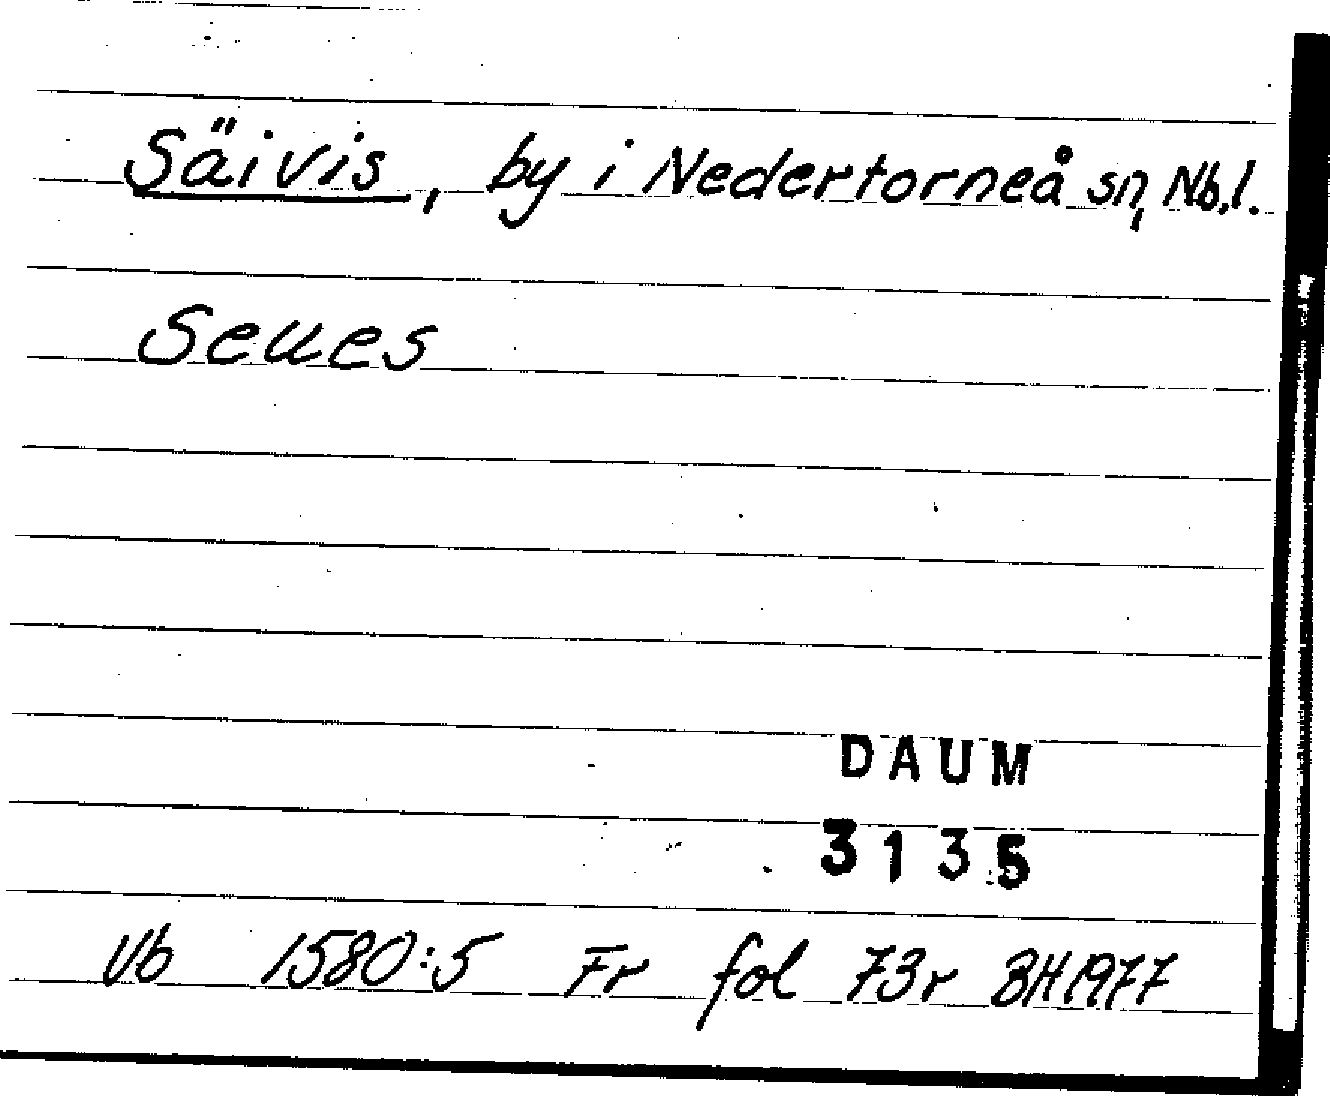 Säivis, by i Nedertorneå sn, Nb.l.
Seues
DAUM
3135
Vb 1580:5 Fr fol 73r BH 1977